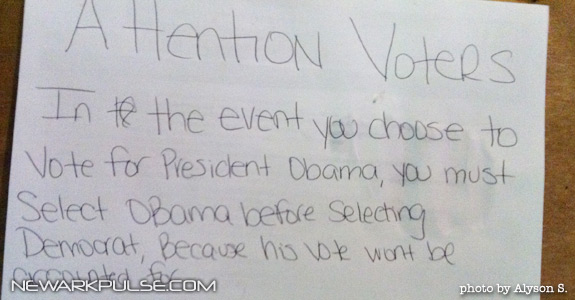 Attention Voters
In the event you choose to
Vote for President Obama, you must
Select OBama before Selecting
Democrat, Because his vote wont be
NEWARKPULSE.COM
photo by Alyson S.